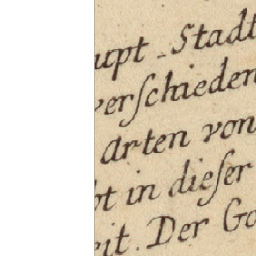 upt-Stadt
verſchieden
arten von
bt in dieſer
eit. Der Go